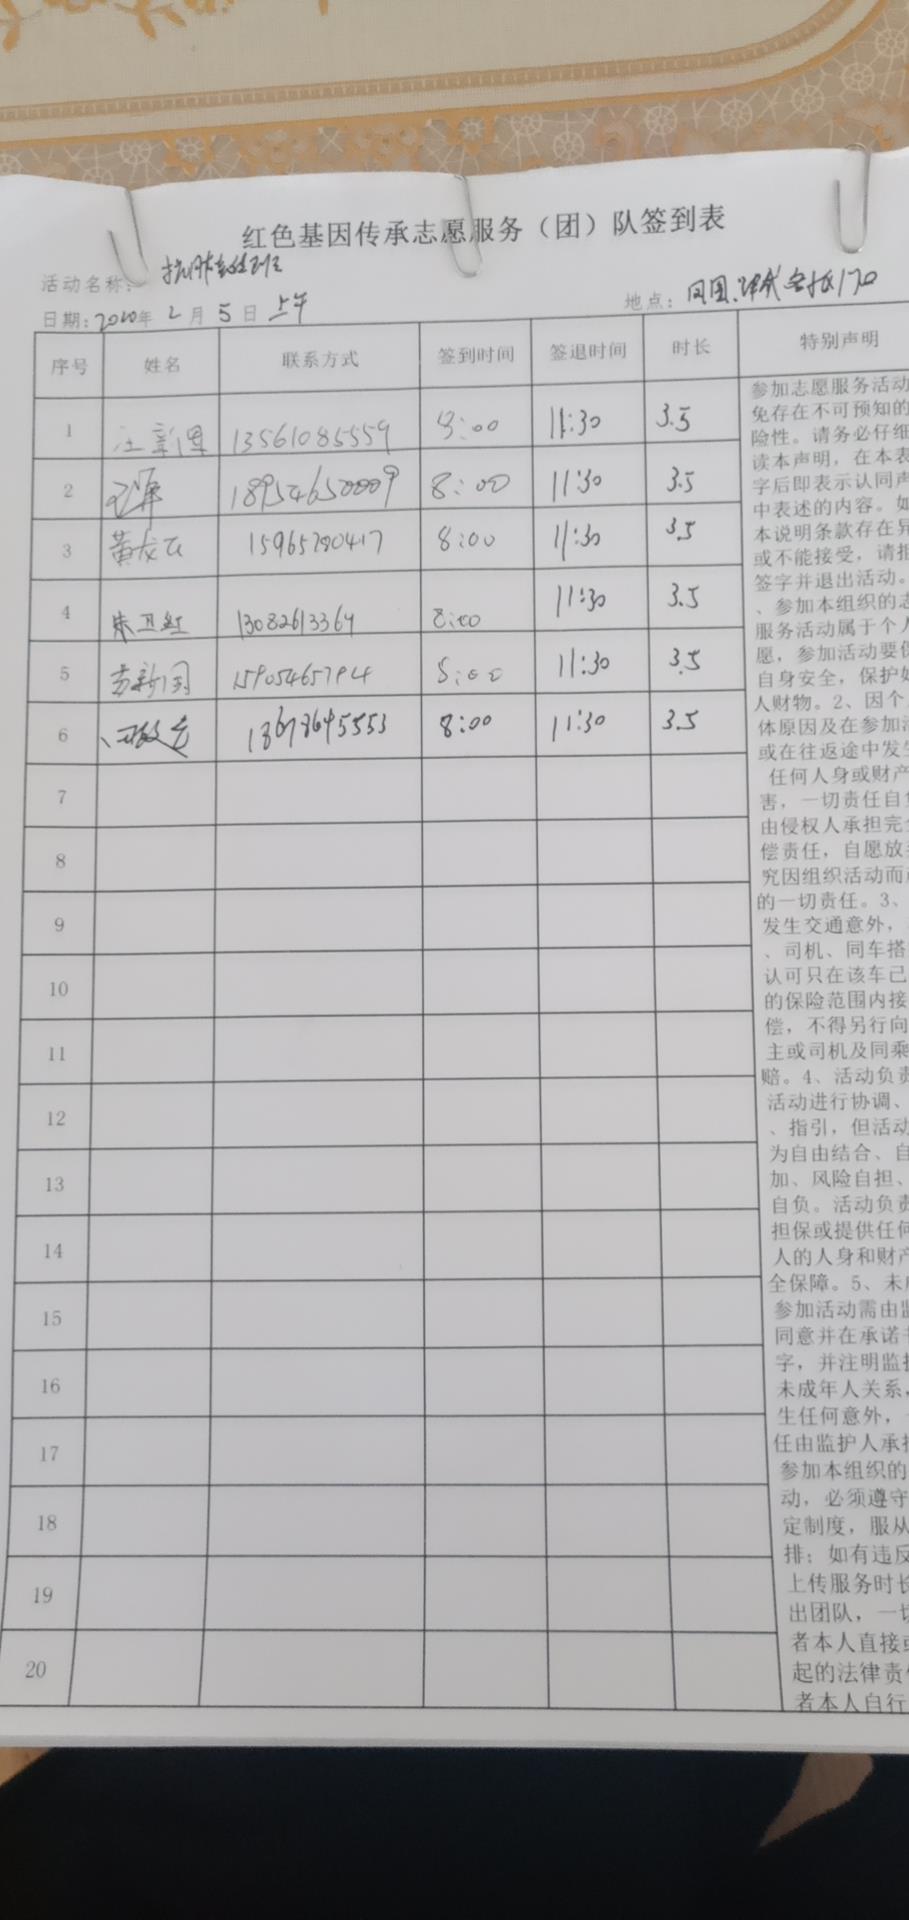 红色基因传承志愿服务（团）队签到表
活动名称：
日期：2020年2月5日上午 地点：
序号 姓名 联系方式 签到时间 签退时间 时长 特别声明
1 13561085559 8:00 11:30 3.5
2 18954650009 8:00 11:30 3.5
3 黄龙飞 15965280417 8:00 11:30 3.5
4 朱卫红 13082613364 8:00 11:30 3.5
5 苏新国 8:00 11:30 3.5
6 8:00 11:30 3.5
7
8
9
10
11
12
13
14
15
16
17
18
19
20
参加志愿服务活动
免存在不可预知的
险性。请务必仔细
读本声明，在本表
字后即表示认同声
中表述的内容。如
本说明条款存在异
或不能接受，请拒
签字并退出活动。
、参加本组织的志
服务活动属于个人
愿，参加活动要保
自身安全，保护好
人财物。2、因个
体原因及在参加活
或在往返途中发生
任何人身或财产
害，一切责任自负
由侵权人承担完全
偿责任，自愿放弃
究因组织活动而
的一切责任。3、
发生交通意外，
、司机、同车搭
认可只在该车已
的保险范围内接
偿，不得另行向
主或司机及同乘
赔。4、活动负责
活动进行协调、
、指引，但活动
为自由结合、自
加、风险自担、
自负。活动负责
担保或提供任何
人的人身和财产
全保障。5、未成
参加活动需由监
同意并在承诺书
字，并注明监护
未成年人关系，
生任何意外，
任由监护人承担
参加本组织的
动，必须遵守
定制度，服从
排；如有违反
上传服务时长
出团队，一切
者本人直接或
起的法律责任
者本人自行